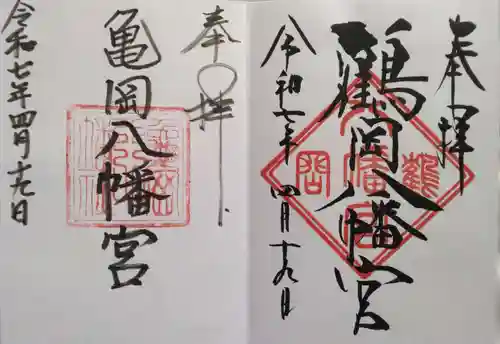 奉拝
鶴岡八幡宮
令和七年四月十九日
鶴
岡
奉拝
亀岡八幡宮
令和七年四月十九日